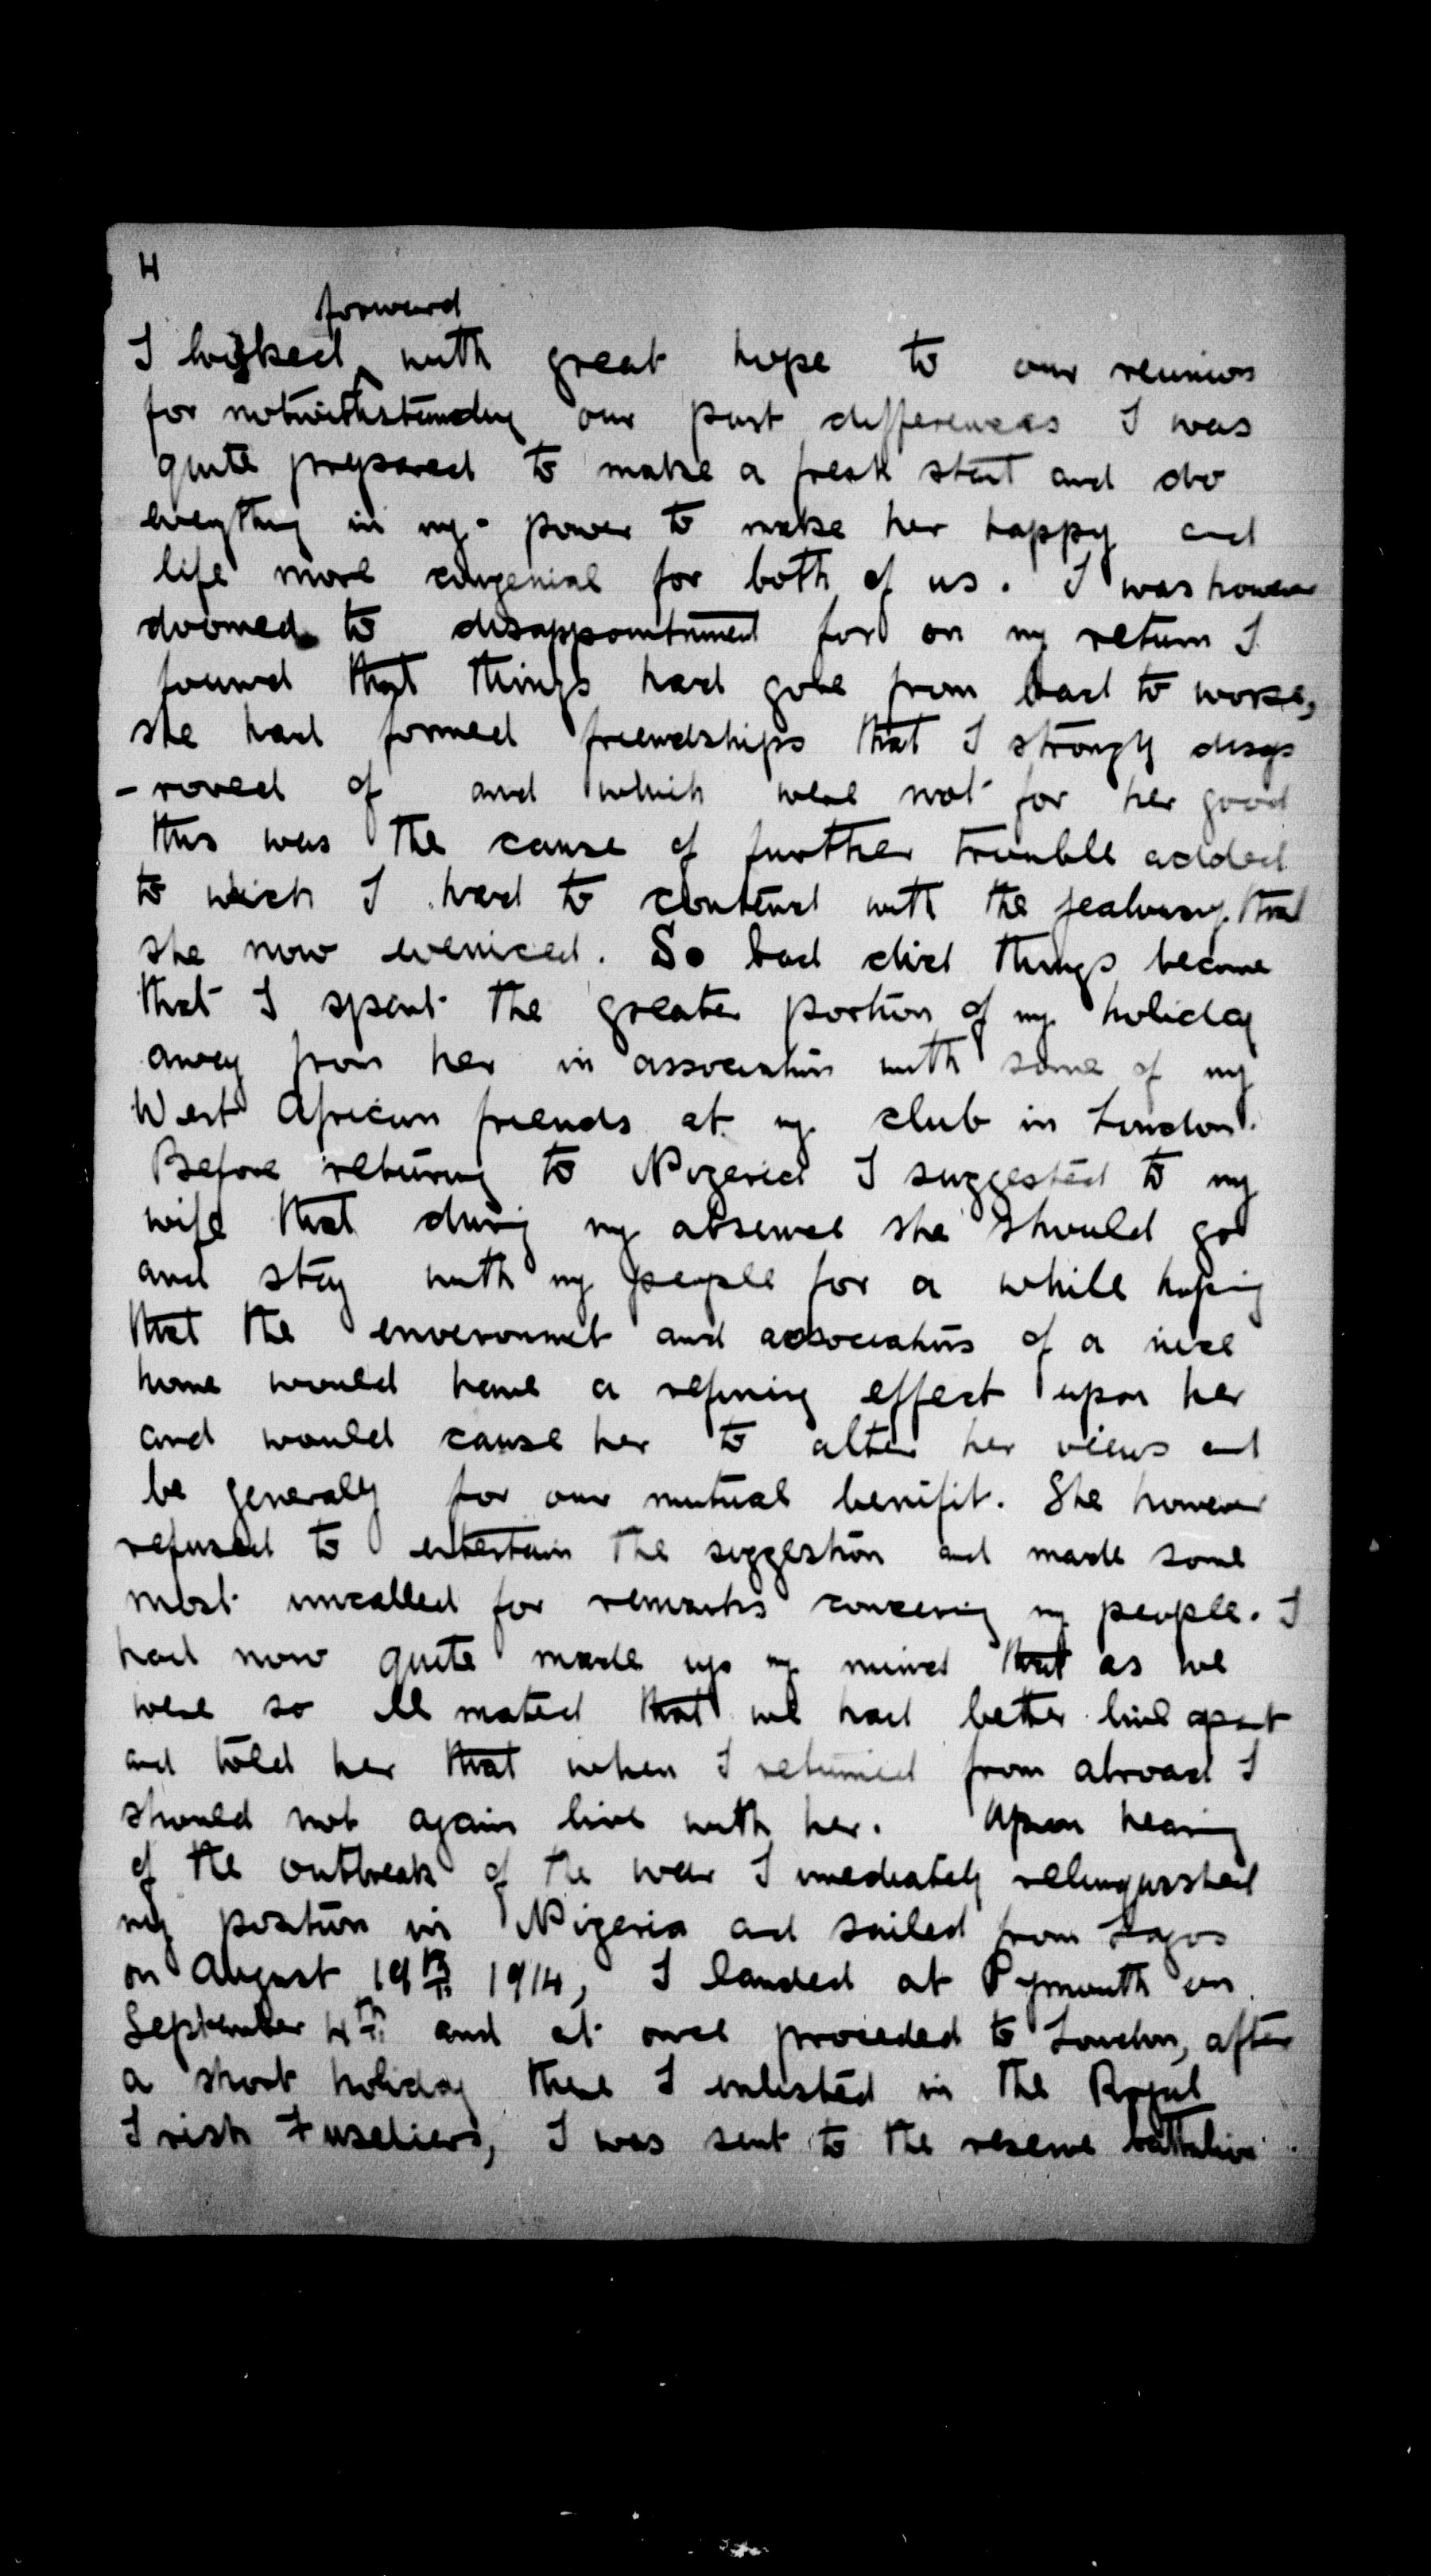 4
forward
I looked ^ with great hope to our reunion
for notwithstanding our past differences I was
quite prepared to make a fresh start and do
everything in my power to make her happy and
life more congenial for both of us. I was however
doomed to disappointment for on my return I
found that things had gone from bad to worse,
she had formed friendships that I strongly disap
- roved of and which were not for her good
this was the cause of further trouble added
to which I had to contend with the jealousy that
she now eveniced. So bad did things become
that I spent the greater portion of my holiday
away from her in association with some of my
West African friends at my club in London.
Before returning to Nigeria I suggested to my
wife that during my absence she should go
and stay with my people for a while hoping
that the enveronment and associations of a nice
home would have a refining effect upon her
and would cause her to alter her views and
be generally for our mutual benifit. She however
refused to entertain the suggestion and made some
most uncalled for remarks concerning my people. I
had now quite made up my mind that as we
were so ill mated that we had better live apart
and told her that when I returned from abroad I
should not again live with her. Upon hearing
of the outbreak of the war I imediately relinquished
my position in Nigeria and sailed from Lagos
on August 19th 1914, I landed at Plymouth on
September 4th and at once proceeded to London, after
a short holiday there I enlisted in the Royal
Irish Fuseliers, I was sent to the reserve battalion